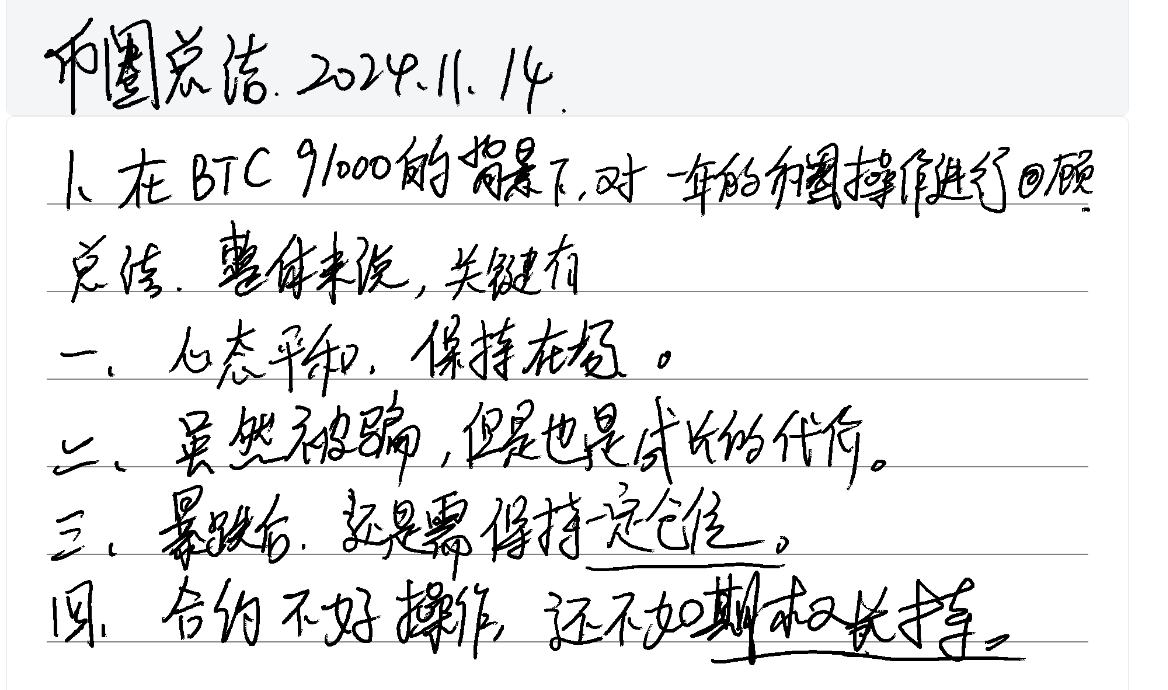 币圈总结. 2024.11.14.
1、在BTC 91000的背景下,对一年的币圈操作进行回顾.
总结. 整体来说,关键有
一、心态平和,保持在场。
二、虽然被骗,但是也是成长的代价。
三、暴跌后.还是需保持一定仓位。
四、合约不好操作,还不如期权长持。